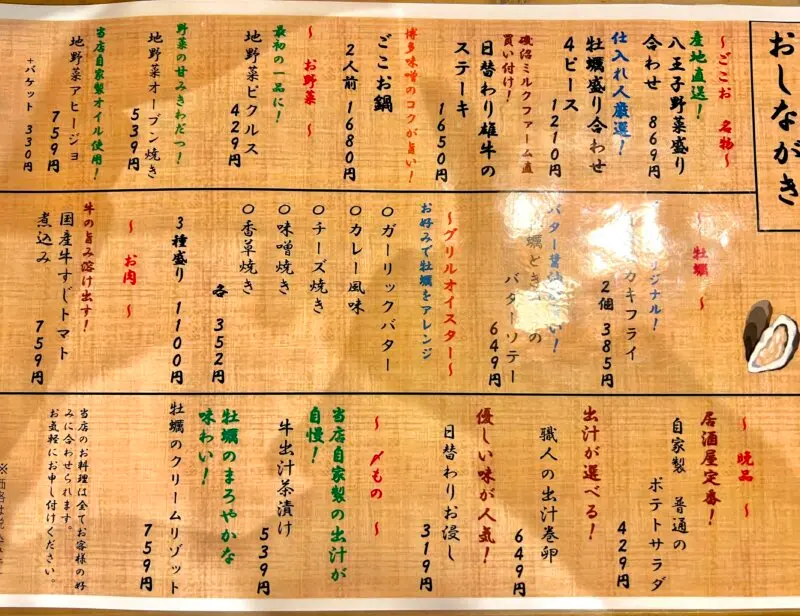 おしながき
〜ごこお 名物〜
産地直送!
八王子野菜盛り
合わせ 869円
仕入れ人厳選!
牡蠣盛り合わせ
4ピース
1210円
磯沼ミルクファーム直
買い付け!
日替わり雄牛の
ステーキ
1650円
博多味噌のコクが旨い!
ごこお鍋
2人前 1680円
〜 お野菜 〜
最初の一品に!
地野菜ピクルス
429円
野菜の甘みきわだつ!
地野菜オーブン焼き
539円
当店自家製オイル使用!
地野菜アヒージョ
759円
+バケット 330円
〜 牡蠣 〜
ジナル!
カキフライ
2個 385円
バター醤油
い!
の
バターソテー
649円
〜グリルオイスター〜
お好みで牡蠣をアレンジ
○ガーリックバター
○カレー風味
○チーズ焼き
○味噌焼き
○香草焼き
各 352円
3種盛り 1100円
〜 お肉 〜
牛の旨み溶け出す!
国産牛すじトマト
煮込み 759円
〜 晩品 〜
居酒屋定番!
自家製 普通の
ポテトサラダ
429円
出汁が選べる!
職人の出汁巻卵
649円
優しい味が人気!
日替わりお浸し
319円
〜 〆もの 〜
当店自家製の出汁が
自慢!
牛出汁茶漬け
539円
牡蠣のまろやかな
味わい!
牡蠣のクリームリゾット
759円
当店のお料理は全てお客様の好
みに合わせられます。
お気軽にお申し付けください。
※価格は税